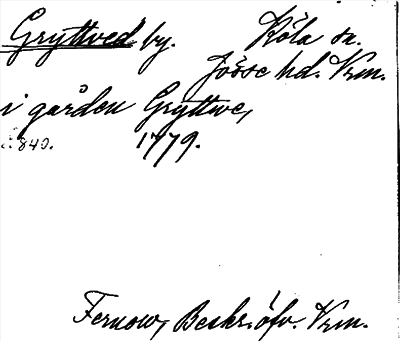 Gryttved by. Köla sn.
Jösse hd. Vrm.
i gården Gryttwe,
s. 840. 1779.
Fernow, Beskr. öfv. Vrm.